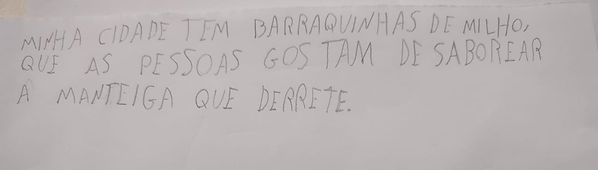 MINHA CIDADE TEM BARRAQUINHAS DE MILHO,
QUE AS PESSOAS GOSTAM DE SABOREAR
A MANTEIGA QUE DERRETE.